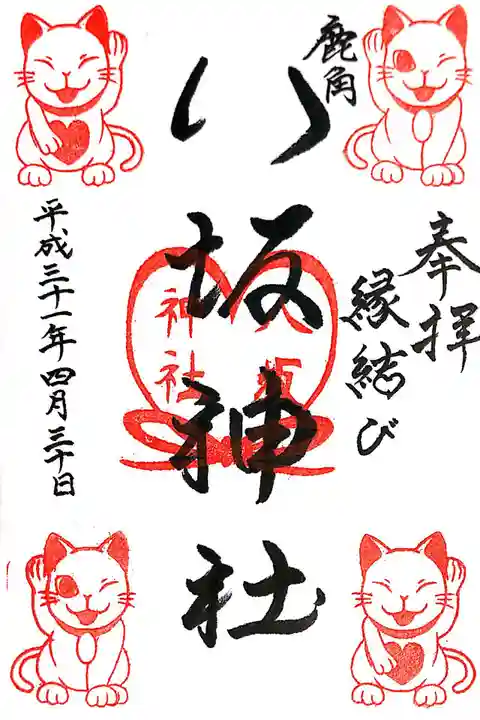 奉拝
縁結び
鹿角
八坂神社
八坂
神社
平成三十一年四月三十日